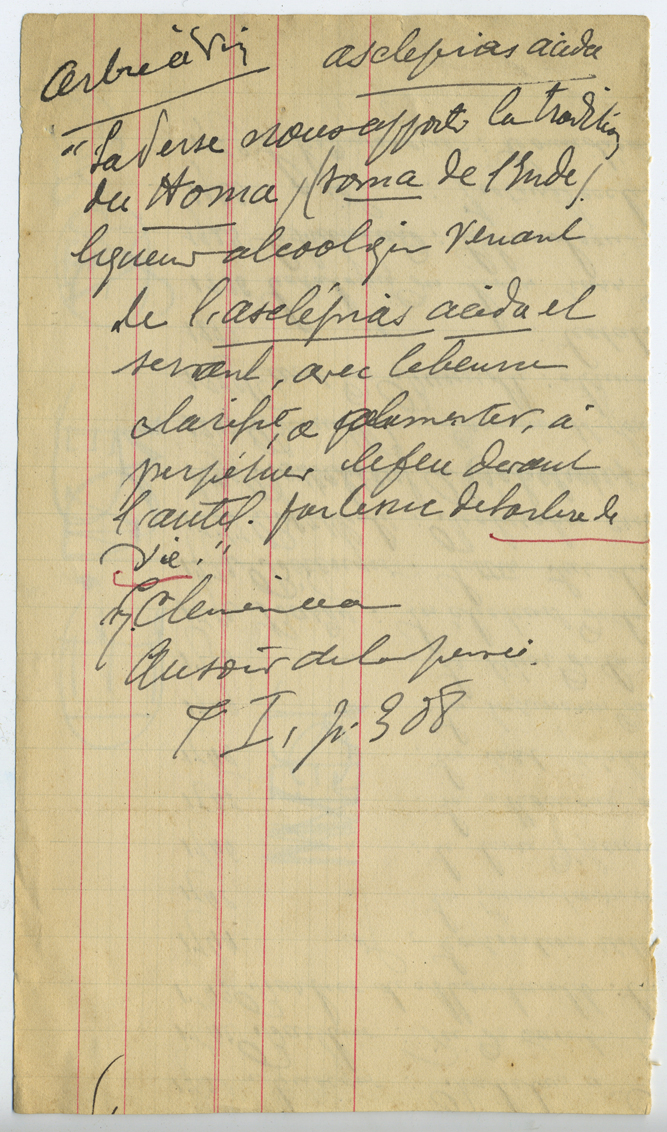 arbre à Vin asclepias acida
"La Perse nous apporte la tradition
du Homa, (soma de l'Inde),
liqueur alcoolique venant
de l'asclépias acida et
servant, avec le beurre
clarifié, à alimenter, à
perpétuer le feu devant
l'autel. par le suc de l'arbre de
vie."
G. Clemenceau
Au soir de la pensée.
T I, p. 308